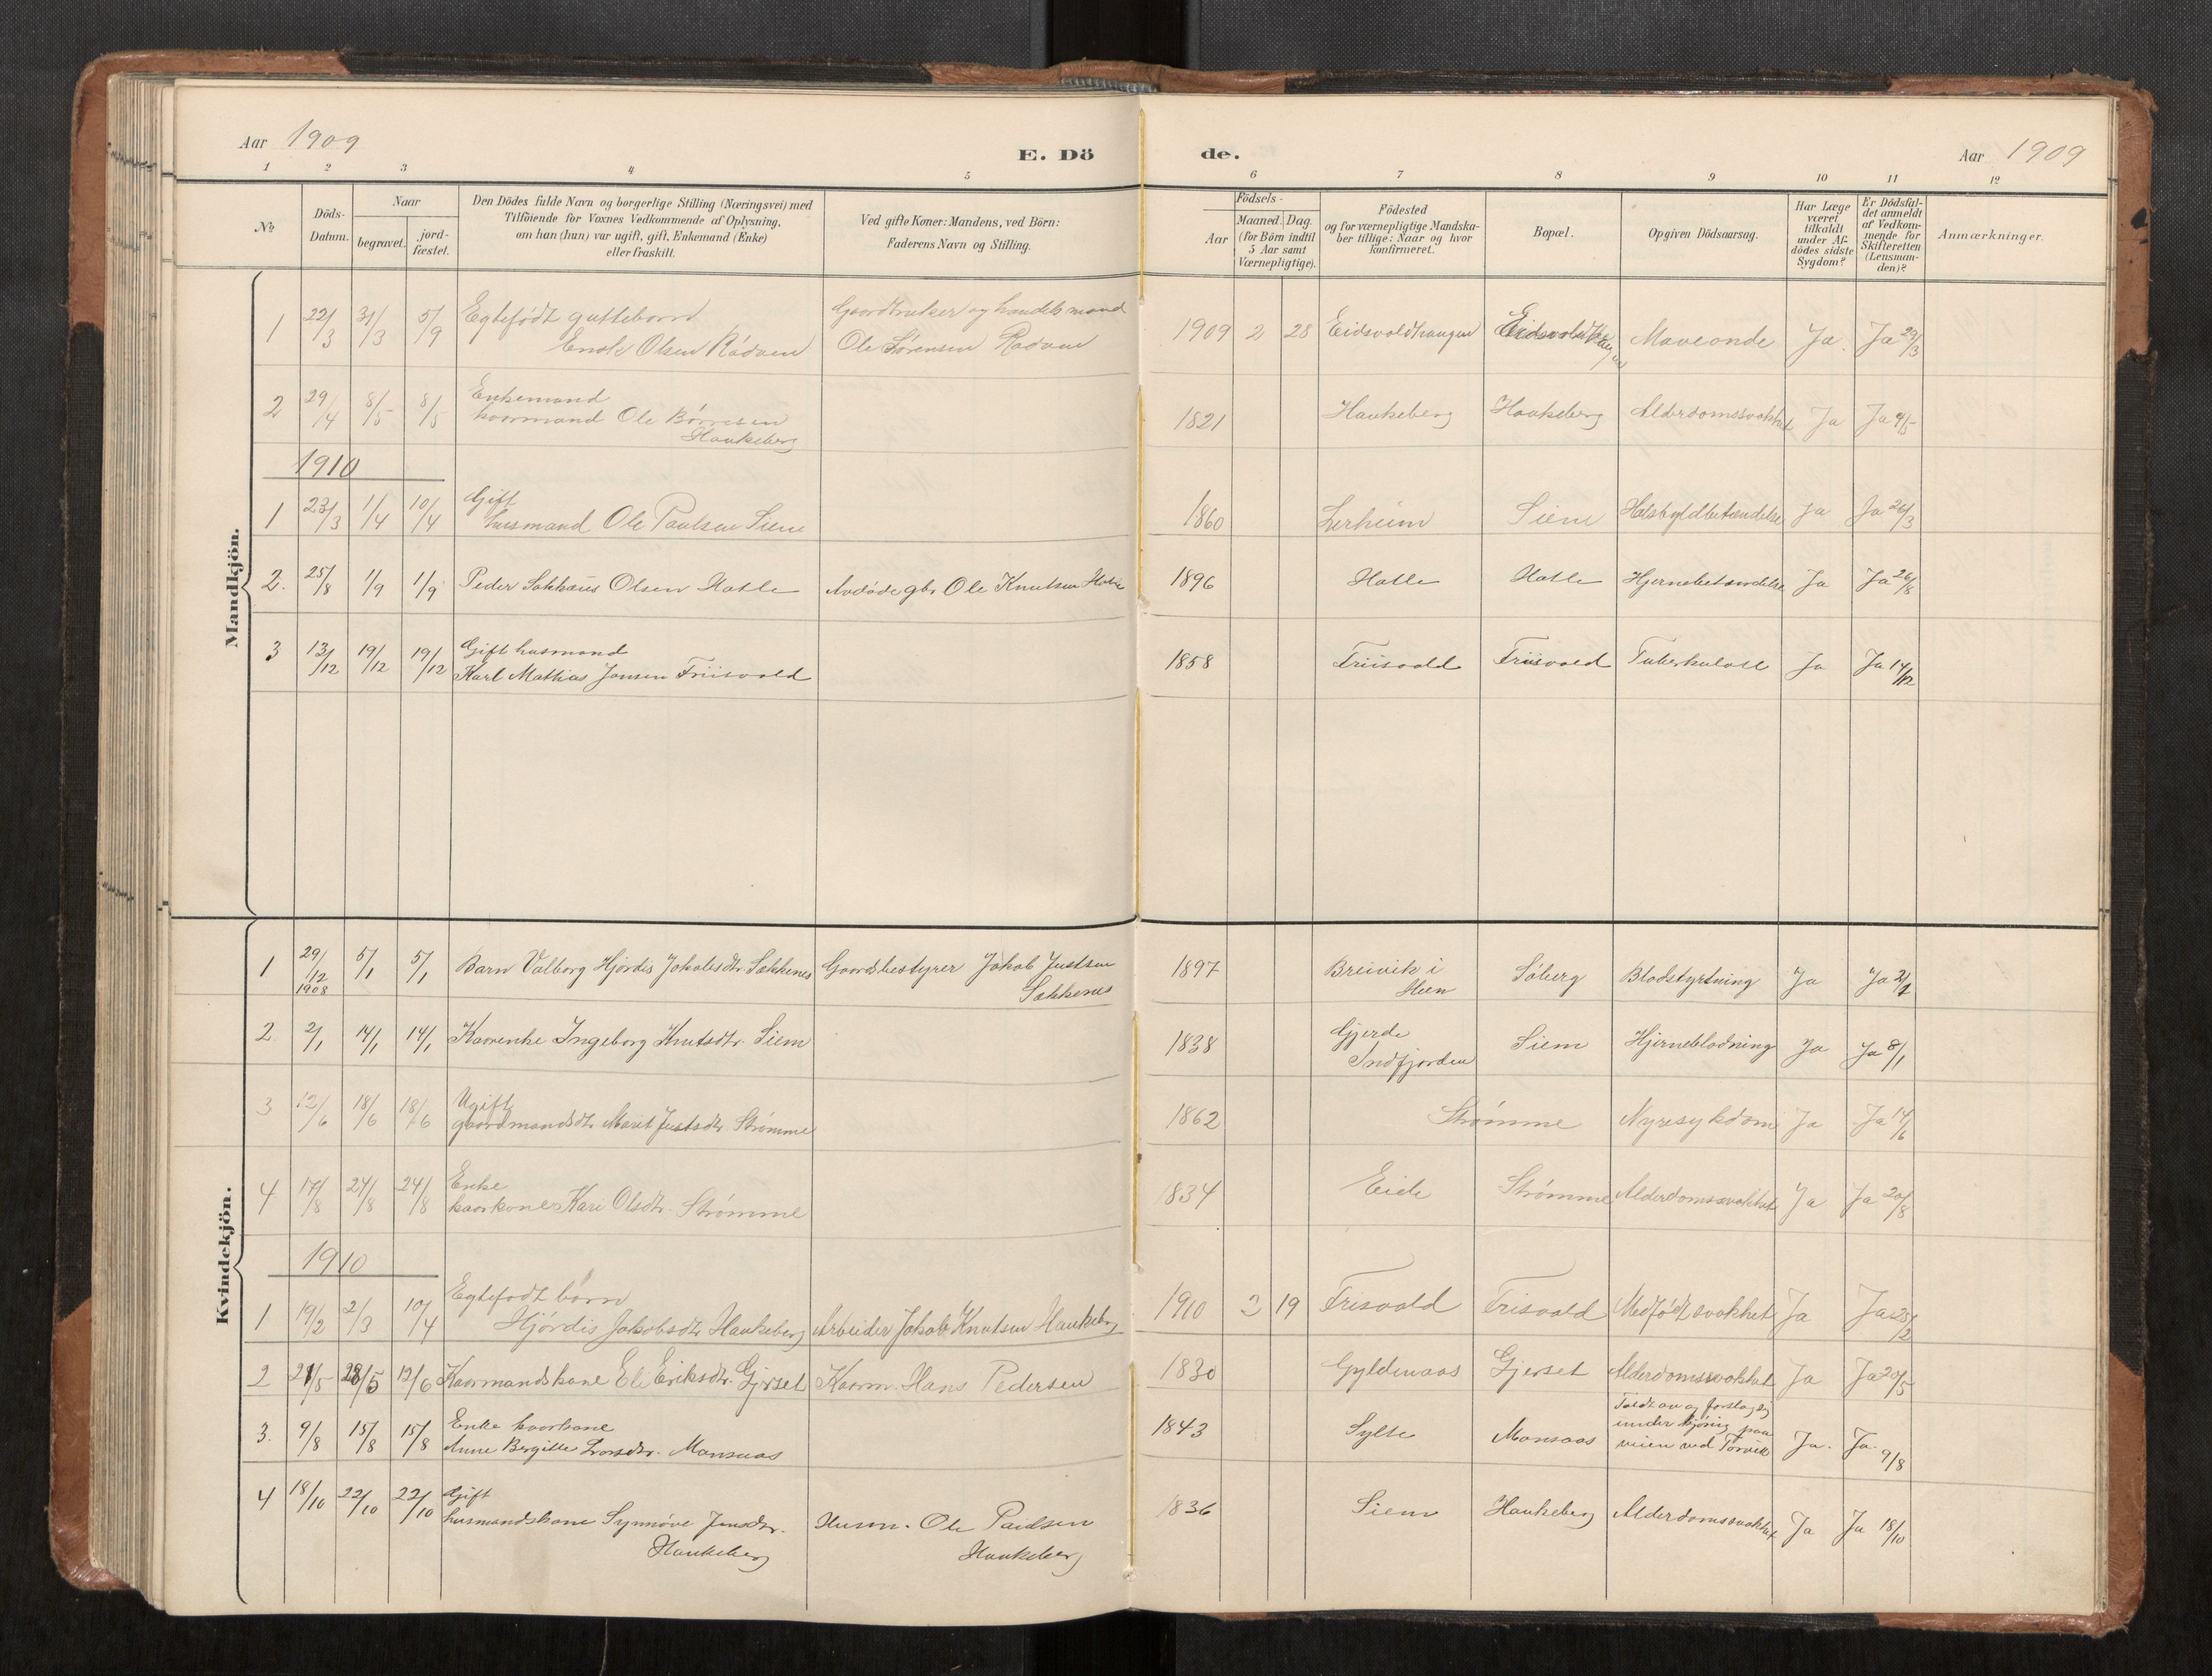 Aar 1909
E. Dö
de.
Aar 1909
1 2 3 4 5 6 7 8 9 10 11 12
№
Döds-Datum.
Naar
begravet.
jord-fæstet.
Den Dödes fulde Navn og borgerlige Stilling (Næringsvei) med
Tilföiende for Voxnes Vedkommende af Oplysning,
om han (hun) var ugift, gift, Enkemand (Enke)
eller fraskilt.
Ved gifte Koner: Mandens, ved Börn:
Faderens Navn og Stilling.
Födsels-
Aar
Maaned. Dag.
(for Börn indtil
5 Aar samt
Værnepligtige).
Födested
og for værnepligtige Mandska-
ber tillige: Naar og hvor
konfirmeret.
Bopæl.
Opgiven Dödsaarsag.
Har Læge
været
tilkaldt
under Af-
dödes sidste
Sygdom?
Er Dödsfal-
det anmeldt
af Vedkom-
mende for
Skifteretten
(Lensman-
den)?
Anmærkninger.
Mandkjön.
1 22/3 31/3 5/9 Egtefödt guttebarn Gaardbruker og handelsmand
Olsen Rödven Ole Sørensen Rødven 1909 2 28 Eidsvoldhaugen Maveonde Ja. Ja 29/3
2 29/4 8/5 8/5 Enkemand
kaarmand Ole Børresen
Haukeberg 1821 Haukeberg Haukeberg Alderdomssvakhet Ja Ja 4/5
1910
1 23/3 1/4 10/4 Gift
husmand Ole Paulsen Siem 1860 Lerheim Siem Ja Ja 26/3
2. 25/8 1/9 1/9 Peder Olsen Hatle Avdøde gbr. Ole Knutsen Hatle 1896 Hatle Hatle Hjernebetændelse Ja Ja 26/8
3 13/12 19/12 19/12 Gift husmand
Karl Mathias Jansen Friisvold 1858 Friisvold Friisvold Tuberkulose Ja Ja 14/12
Kvindekjön.
1 29/12 1908 5/1 5/1 Barn Valborg Hjördis Jakobsdtr. Sækkenes Gaardsbestyrer Jakob Justsen
Sækkenes 1897 Breivik i
Hen Söberg Blodstyrtning Ja Ja
2. 2/1 14/1 14/1 Kaarenke Ingeborg Knutsdtr. Siem 1838 Gjerde
Indfjorden Siem Hjerneblødning Ja Ja 8/1
3 12/6 18/6 18/6 Ugift
gaardmandsdtr. Marit Justsdtr. Strømme 1862 Strømme Nyresykdom Ja Ja 14/6
4 17/8 24/8 24/8 Enke
kaarkone Kari Olsdtr. Strømme 1834 Eide Strømme Alderdomssvakhet Ja Ja 20/8
1910
1 19/2 2/3 10/4 Egtefødt barn
Hjördis Jakobsdtr. Haukeberg Arbeider Jakob Knutsen Haukeberg 1910 2 19 Frisvold Frisvold Medfødt svakhet Ja Ja 23/2
2 21/5 28/5 12/6 Kaarmandskone Eli Eriksdtr. Gjerset Kaarm. Hans Pedersen 1830 Gyldenaas Gjerset Alderdomssvakhet Ja Ja 20/5
3. 9/8 15/8 15/8 Enke kaarkone
Anne Bergitte Larsdtr. Monsaas 1843 Sylte Monsaas Faldt av og forslog sig
under kjöring paa
veien ved Torvik Ja. Ja. 9/8
4 18/10 22/10 22/10 Gift
husmandskone Synnøve Jensdtr.
Haukeberg Husm. Ole Paulsen
Haukeberg 1836 Siem Haukeberg Alderdomssvakhet Ja Ja 18/10